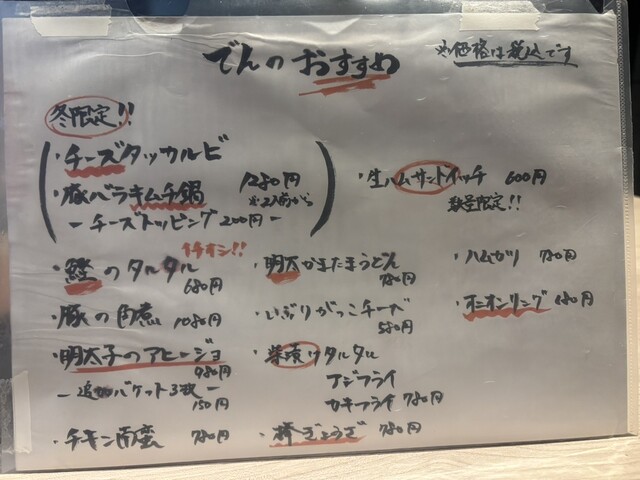 でんのおすすめ
※価格は税込です
冬限定!!
・チーズタッカルビ
・豚バラキムチ鍋 1280円
※2人前から
ーチーズトッピング200円ー
・生ハムサンドイッチ 600円
数量限定!!
イチオシ!!
・鰹のタルタル
680円
・豚の角煮 1080円
・明太子のアヒージョ
980円
ー追加バケット3枚ー
150円
・チキン南蛮 780円
・明太かまたまうどん
780円
・いぶりがっこチーズ
580円
・柴漬けタルタル
アジフライ
カキフライ 780円
・棒ぎょうざ 780円
・ハムカツ 780円
・オニオンリング 680円